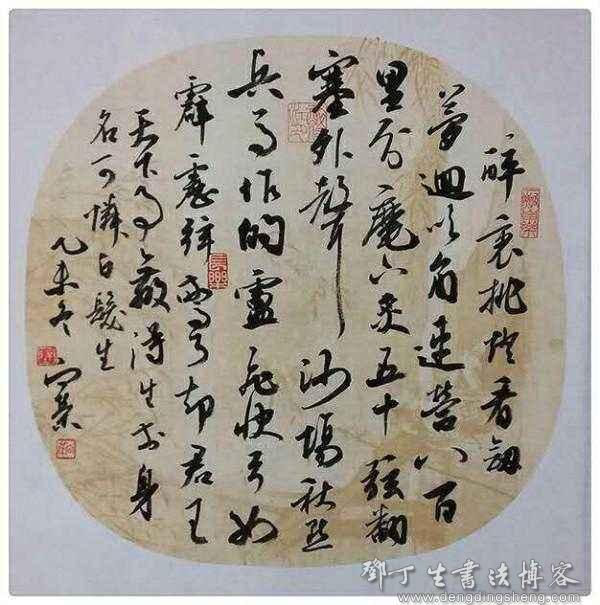 醉裏挑灯看劍
夢迴吹角連營八百
里分麾下炙五十弦翻
塞外聲沙場秋點
兵馬作的盧飛快弓如
霹靂弦驚了却君王
天下事贏得生前身
名可憐白髮生
乙未冬
鄧丁生書法博客
www.dengdingsheng.com